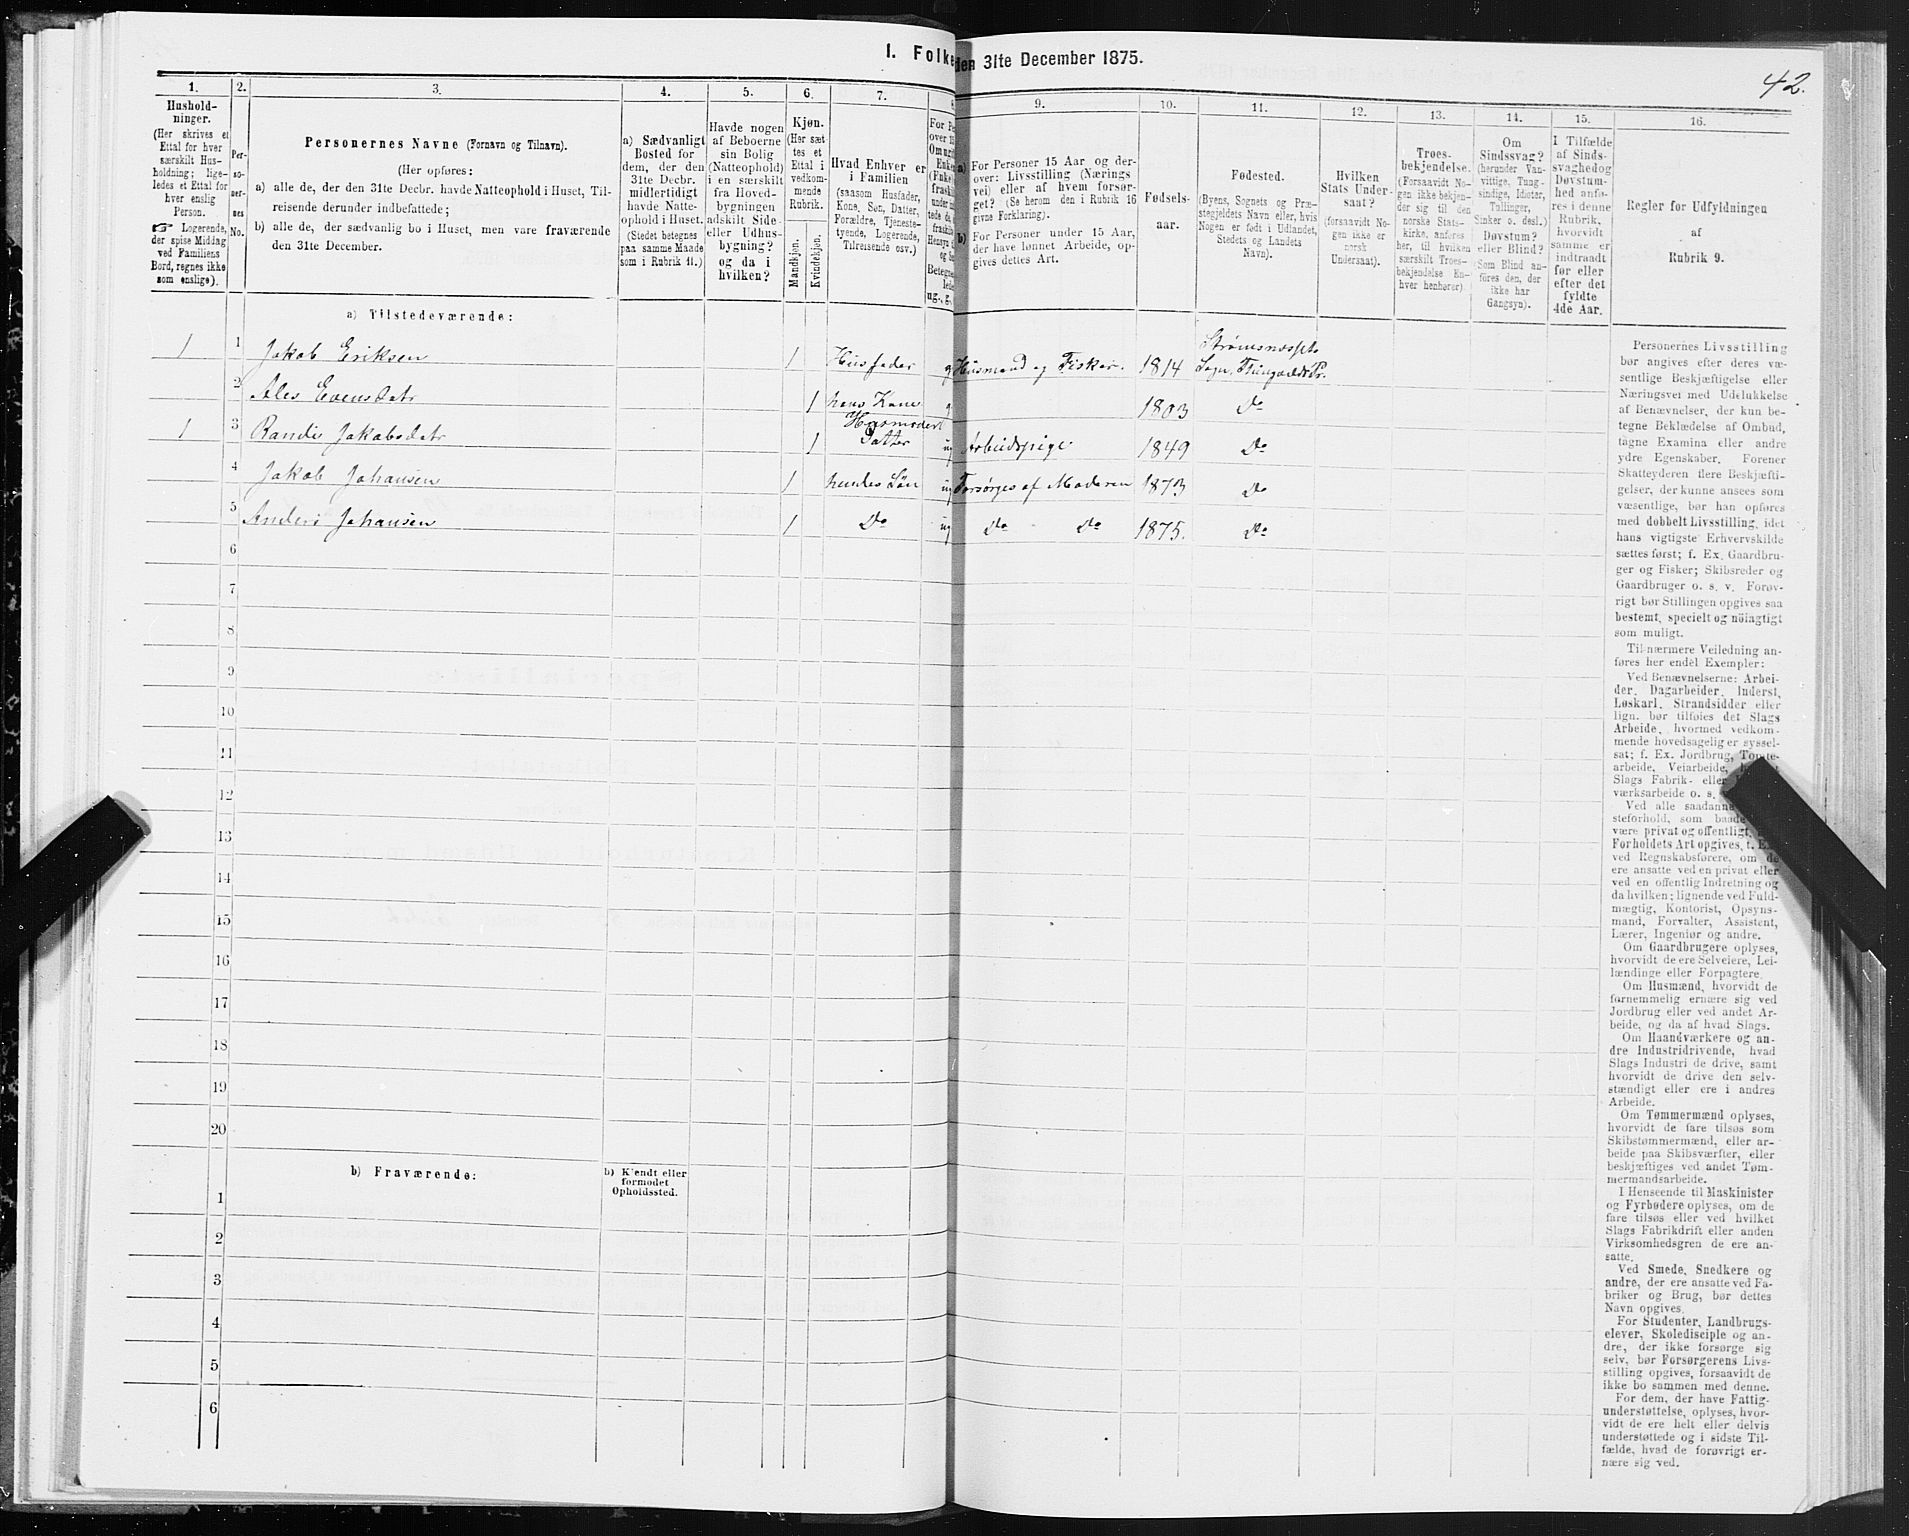 I. Folke den 31te December 1875.
42.
1.
2.
3.
4.
5.
6.
7.
8
9.
10.
11.
12.
13.
14.
15.
16.
Hushold-
ninger.
(Her skrives et
Ettal for hver
særskilt Hus-
holdning; lige-
ledes et Ettal for
hver enslig
Person.
☞ Logerende,
der spise Middag
ved Familiens
Bord, regnes ikke
som enslige).
Per-
so-
ner-
nes
No.
Personernes Navne (Fornavn og Tilnavn).
(Her opføres:
a) alle de, der den 31te Decbr. havde Natteophold i Huset, Til-
reisende derunder indbefattede;
b) alle de, der sædvanlig bo i Huset, men vare fraværende
den 31te December.
a) Sædvanligt
Bosted for
dem, der den
31te Decbr.
midlertidigt
havde Natte-
ophold i Huset.
(Stedet betegnes
paa samme Maade
som i Rubrik 11.)
Havde nogen
af Beboerne
sin Bolig
(Natteophold)
i en særskilt
fra Hoved-
bygningen
adskilt Side-
eller Udhus-
bygning?
og da i
hvilken?
Kjøn.
(Her sæt
tes et
Ettal i
vedkom-
mende
Rubrik.
Mandkjøn.
Kvindekjøn.
Hvad Enhver er
i Familien
(saasom Husfader,
Kone, Søn, Datter,
Forældre, Tjeneste-
tyende, Logerende,
Tilreisende osv.)
a) For Personer 15 Aar og der-
over: Livsstilling (Nærings
vei) eller af hvem forsør-
get? (Se herom den i Rubrik 16
givne Forklaring).
b) For Personer under 15 Aar,
der have lønnet Arbeide, op-
gives dettes Art.
Fødsels-
aar.
Fødested.
(Byens, Sognets og Præ-
stegjeldets Navn eller, hvis
Nogen er født i Udlandet,
Stedets og Landets
Navn).
Hvilken
Stats Under-
saat?
(forsaavidt No-
gen ikke er
norsk
Undersaat).
Troes-
bekjendelse.
(Forsaavidt No-
gen ikke bekjen-
der sig til den
norske Stats-
kirke, anføres
her, til hvilken
særskilt Troes-
bekjendelse En-
hver henhører).
Om
Sindssvag?
(herunder Van-
vittige, Tung-
sindige, Idioter,
Tullinger,
Sinker o. desl.)
Døvstum?
eller Blind?
(Som Blind an-
føres den, der
ikke har
Gangsyn).
I Tilfælde
af Sinds-
svaghed og
Døvstum-
hed anfø-
res i denne
Rubrik,
hvorvidt
samme er
indtraadt
før eller
efter det
fyldte
4de Aar.
Regler for Udfyldningen
af
Rubrik 9.
a) Tilstedeværende:
1 1 Jakob Eriksen 1 Husfader g Husmand og Fisker. 1814
2 Ales Evensdatr 1 hans Kone g 1803 Do
Husmoder
1 3 Randi Jakobsdatr 1 Datter ug Arbeidspige 1849 Do
4 Jakob Johansen 1 hendes Søn ug Forsørges af Moderen 1873 Do
5 Anders Johansen 1 Do ug Do Do 1875. Do
6
7
8
9
10
11
12
13
14
15
16
17
18
19
20
b) Fraværende:
b) Kjendt eller
formodet
Opholdssted.
1
2
3
4
5
6
Personernes Livsstilling
bør angives efter deres væ-
sentlige Beskjæftigelse eller
Næringsvei med Udelukkelse
af Benævnelser, der kun be-
tegne Beklædelse af Ombud,
tagne Examina eller andre
ydre Egenskaber. Forener
Skatteyderen flere Beskjæfti-
gelser, der kunne ansees som
væsentlige, bør han opføres
med dobbelt Livsstilling, idet
hans vigtigste Erhvervskilde
sættes først; f. Ex. Gaardbru-
ger og Fisker; Skibsreder og
Gaardbruger o. s. v. Forøv-
rigt bør Stillingen opgives saa
bestemt, specielt og nöiagtigt
som muligt.
Til nærmere Veiledning an-
føres her endel Exempler:
Ved Benævnelserne: Arbei-
der, Dagarbeider, Inderst,
Løskarl, Strandsidder eller
lign. bør tilføies det Slags
Arbeide, hvormed vedkom-
mende hovedsagelig er syssel-
sat; f. Ex. Jordbrug, Tomte-
arbeide, Veiarbeide,
Slags Fabrik- eller
værksarbeide o. s.
Ved alle saadanne
steforhold, som baade
være privat og offentligt,
Forholdets Art opgives, f. Ex.
ved Regnskabsførere, om de
ere ansatte ved en privat eller
ved en offentlig Indretning og
da hvilken; lignende ved Fuld-
mægtig, Kontorist, Opsyns-
mand, Forvalter, Assistent,
Lærer, Ingeniør og andre.
Om Gaardbrugere oplyses,
hvorvidt de ere Selveiere, Lei-
lændinge eller Forpagtere.
Om Husmænd, hvorvidt de
fornemmelig ernære sig ved
Jordbrug eller ved andet Ar-
beide, og da af hvad Slags.
Om Haandværkere og an-
dre Industridrivende, hvad
Slags Industri de drive, samt
hvorvidt de drive den selv-
stændigt eller ere i andres
Arbeide.
Om Tømmermænd oplyses,
hvorvidt de fare tilsøs som
Skibstømmermænd, eller ar-
beide paa Skibsværfter, eller
beskjæftiges ved andet Tøm-
mermandsarbeide.
I Henseende til Maskinister
og Fyrbødere oplyses, om de
fare tilsøs eller ved hvilket
Slags Fabrikdrift eller anden
Virksomhedsgren de ere an-
satte.
Ved Smede, Snedkere og
andre, der ere ansatte ved Fa-
briker og Brug, bør dettes
Navn opgives.
For Studenter, Landbrugs-
elever, Skoledisciple og an-
dre, der ikke forsørge sig
selv, bør Forsørgerens Livs-
stilling opgives, forsaavidt de
ikke bo sammen med denne.
For dem, der have Fattig-
understøttelse, oplyses, hvor-
vidt de ere helt eller delvis
understøttede og i sidste Til-
fælde, hvad de forøvrigt er-
nære sig ved.